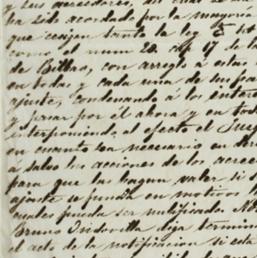 y sus acreedores,
ha sido acordado por la mayoria
que exijen tanto la ley
como el num 20 del 17 de la
de Bilbao, con arreglo á estas
en todas y cada una de sus par
ajuste, condenando á los intere
y pasar por él ahora y en tod
interponiendo al efecto el Juzg
en cuanto sea necesario en dere
á salvo las acciones de los acree
para que las hagan valer si
ajuste se funda en motivos
cuales pueda ser notificado.
Bruno diga termin
el acto de la notificacion si esta